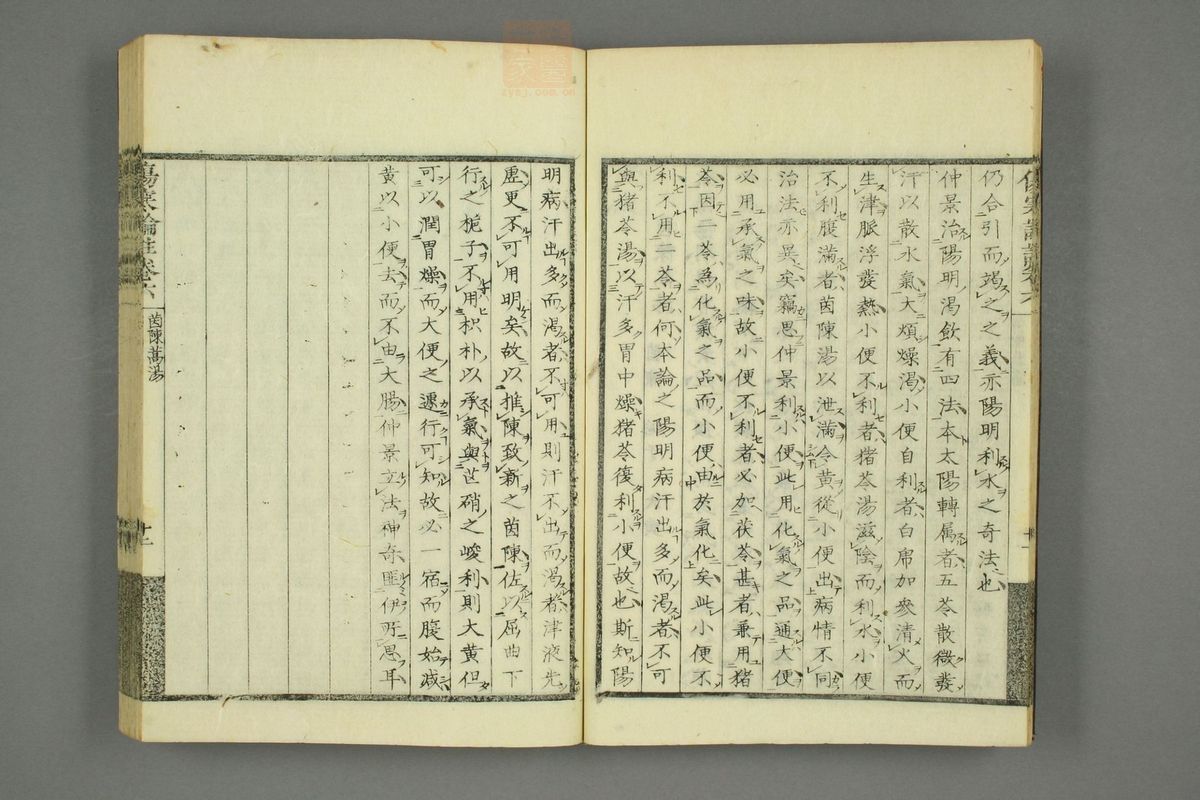 仍合引而竭之之義亦陽明利水之奇法也
仲景治陽明渴飲有四法本太陽轉属者五苓散微發
汗以散水氣大煩燥渴小便自利者白席加參清火而
生津脈浮發熱小便不利者猪苓湯滋陰而利水小便
不利腹滿者茵陳湯以泄滿令黄從小便出病情不同
治法亦異矣竊思仲景利小便此用化氣之品通大便
必用承氣之味故小便不利者必加茯苓甚者兼用猪
苓因二苓為化氣之品而小便由於氣化矣此小便不
利不用二苓者何本論之陽明病汗出多而渴者不可
與猪苓湯以汗多胃中燥猪苓復利小便故也斯知陽
明病汗出多而渴者不可用則汗不出而渴者津液先
虚更不可用明矣故以推陳致新之茵陳佐以屈曲下
行之梔子不用枳朴以承氣與芒硝之峻利則大黄但
可以潤胃燥而大便之遽行可知故必一宿而腹始减
黄以小便去而不由大腸仲景立法神奇匪伊所思耳
傷寒論註卷六
茵陳蒿湯
十二
zysj.com.cn